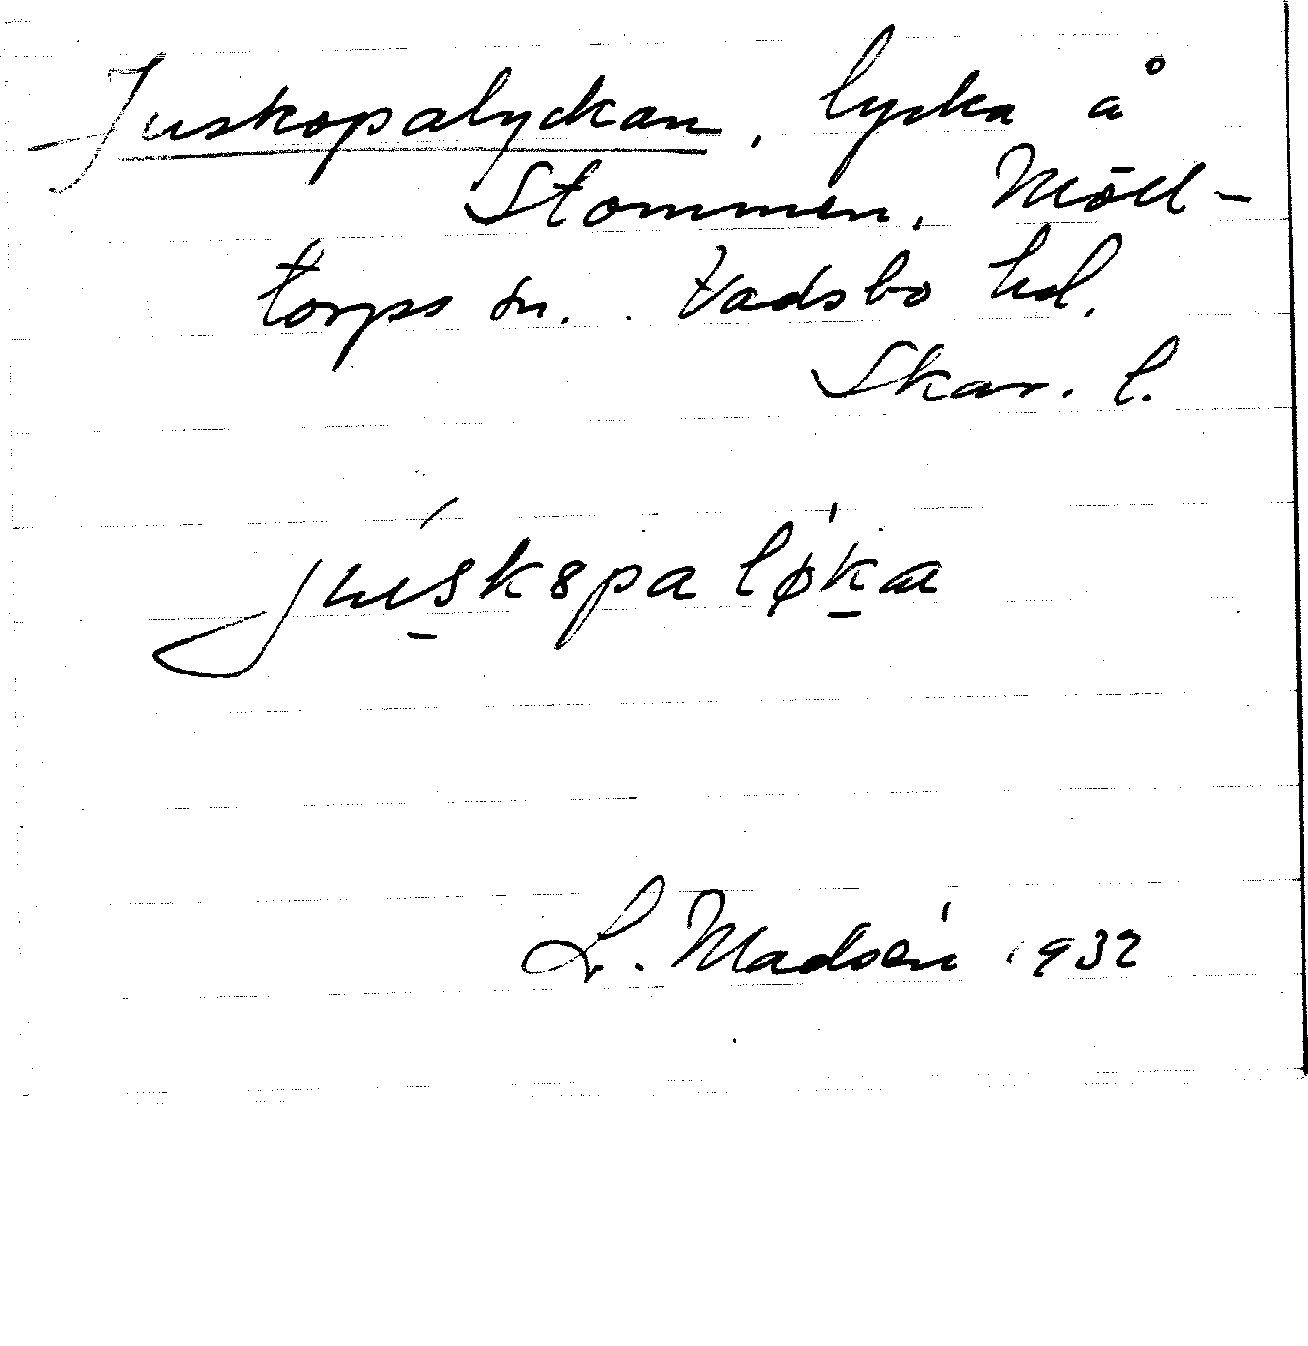 Juskopalyckan, lycka å
Stommen, Möll-
torps sn. Vadsbo hd.
Skar. l.
L. Madsén 1932